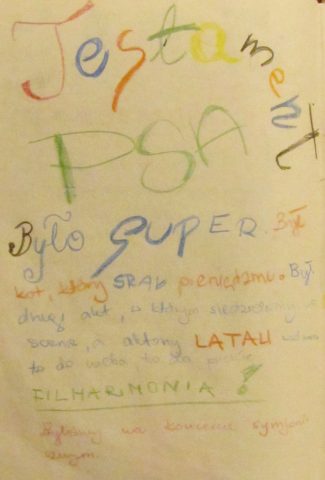 Testament
PSA
Było SUPER. Był
kot, który SRAŁ pieniędzmi. Był
drugi akt, w którym siedzieliśmy na
scenie, a aktorzy LATALI
to do to za
FILHARMONIA!
Byliśmy na koncercie symfoni
cznym.